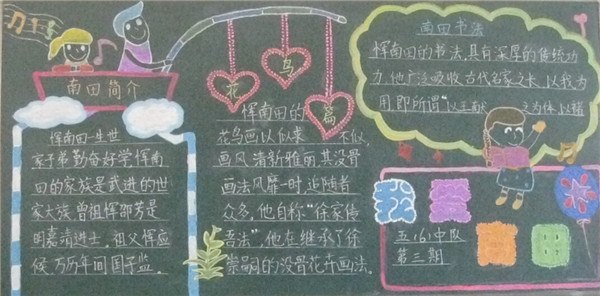 南田简介
恽南田一生世
家子弟勤奋好学恽南
田的家族是武进的世
家大族,曾祖恽邵芳是
明嘉靖进士,祖父恽应
候,万历年间国子监。
花鸟篇
恽南田的
花鸟画以似来 不似,
画风清新雅丽其没骨
画法风靡一时,追随者
众多,他自称"徐家传
吾法",他在继承了徐
崇嗣的没骨花卉画法。
南田书法
恽南田的书法,具有深厚的传统功
力,他广泛吸收古代名家之长,以我为
用,即所谓"以王献 之为体,以褚
五(6)中队
第三期